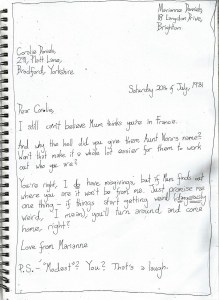 Marianne Daniels,
18 Langdon Drives,
Brighton
Coralie Daniels,
29, Flott Lane,
Bradford, Yorkshire
Saturday 20th of July, 1981
Dear Coralie,
I still can't believe Mum thinks you're in France.
And why the hell did you give them Aunt Nora's name?
Won't that make it a whole lot easier for them to work
out who you are?
You're right, I do have misgivings, but if Mum finds out
where you are it won't be from me. Just promise me
one thing - if things start getting weird (
weird, I mean) you'll turn around and come
home, right?
Love from Marianne
P.S. - "Modest"? You? That's a laugh.